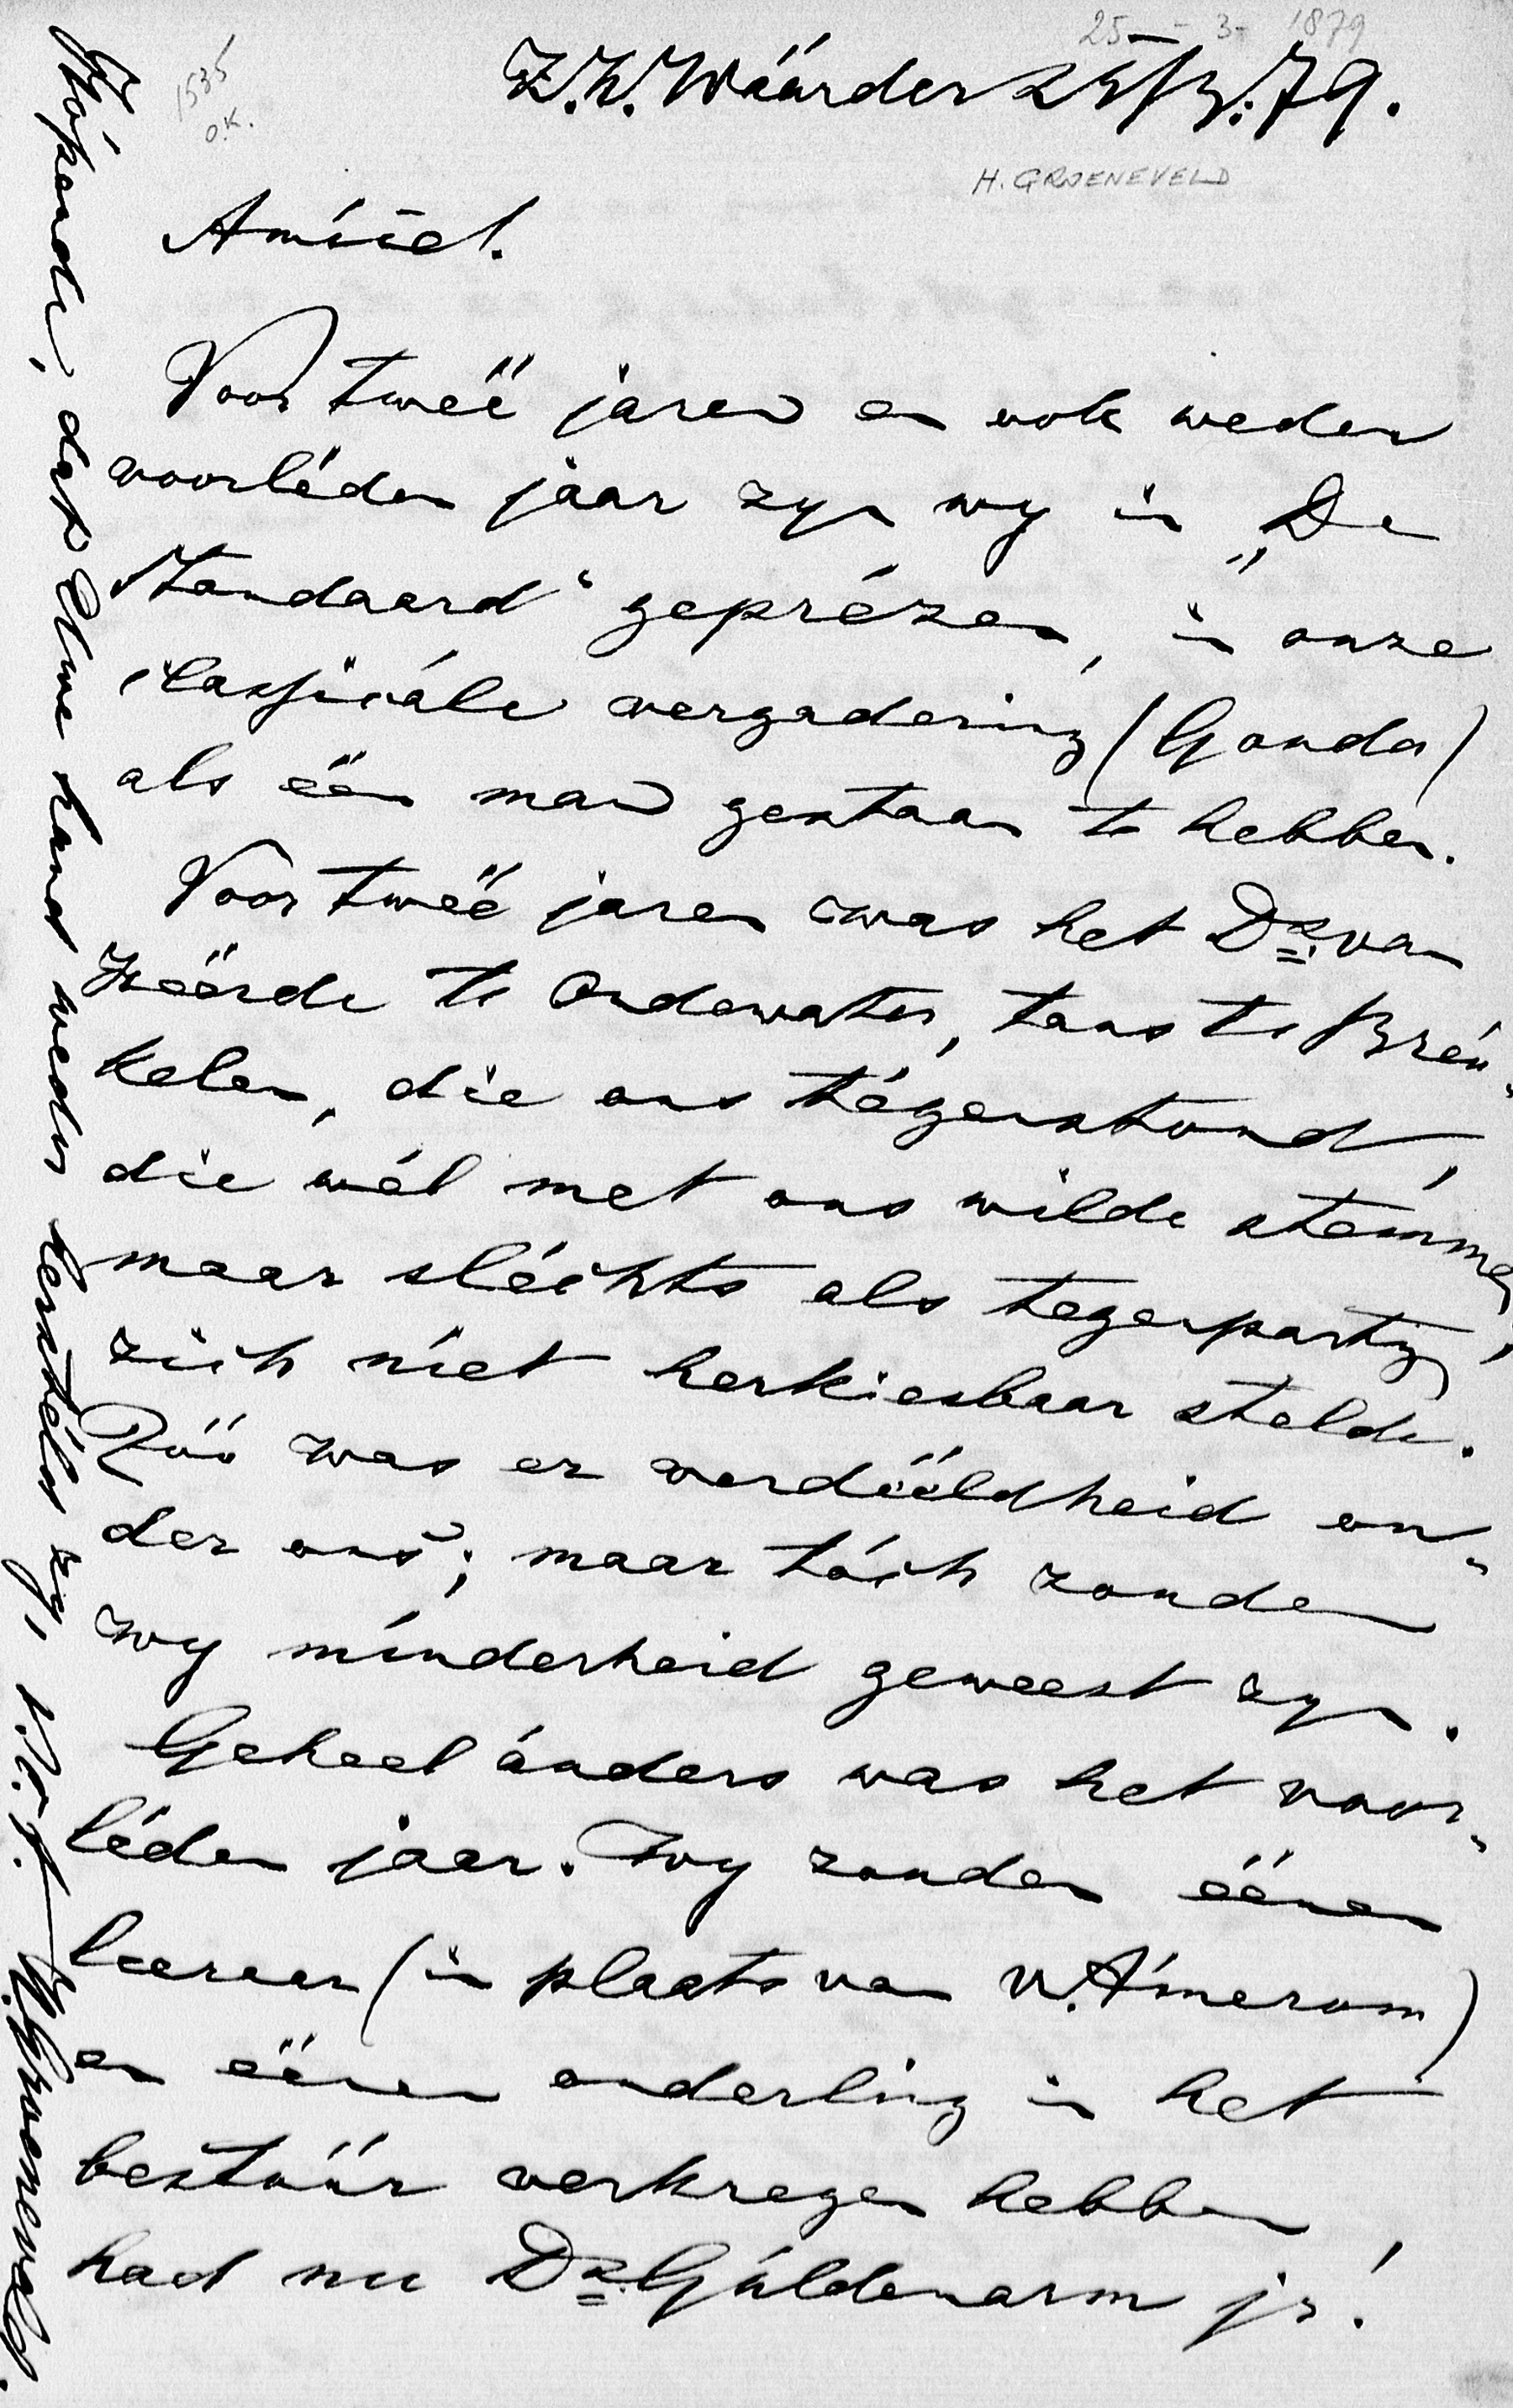 25 - 3 - 1879
1535
O.K.
Z.H. Wáárder 25/3.'79.
H. GROENEVELD
Amíce!.
Voor tweë jaren en ook weder
voorléden jaar zyn wy in „De
Standaard" geprézen, in onze
classicále vergadering (Gouda)
als één man gestaan te hebben.
Voor tweë jaren was het Ds. van
Heërde te Oudewater, tans te Breu„
kelen, die ons tégenstond,
die wél met ons wilde stemmen,
maar sléchts als tegenparty
zich níet herkiesbaar stelde.
Zoó was er verdééldheid on„
der ons; maar tóch zouden
wy mínderheid geweest zyn.
Geheel ánders was het voor„
léden jaar. Wy zouden éénen
leeraar (in plaats van v. Ámerom)
en éénen ouderling in het
bestúúr verkregen hebben
had nu Ds. Gúldenarm jr.!
Hópende, dat Uwe hand weder hersteld zy, t.t. H. Groeneveld.